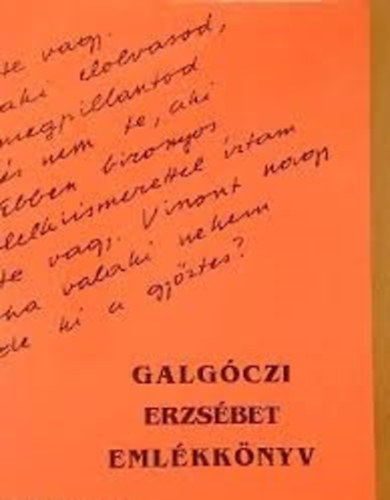 te vagy.
aki elolvasod,
megpillantod
és nem te, aki
Ebben bizonyos
lelkiismerettel írtam
te vagy. Viszont nagy
ha valaki nekem
de ki a győztes?
GALGÓCZI
ERZSÉBET
EMLÉKKÖNYV